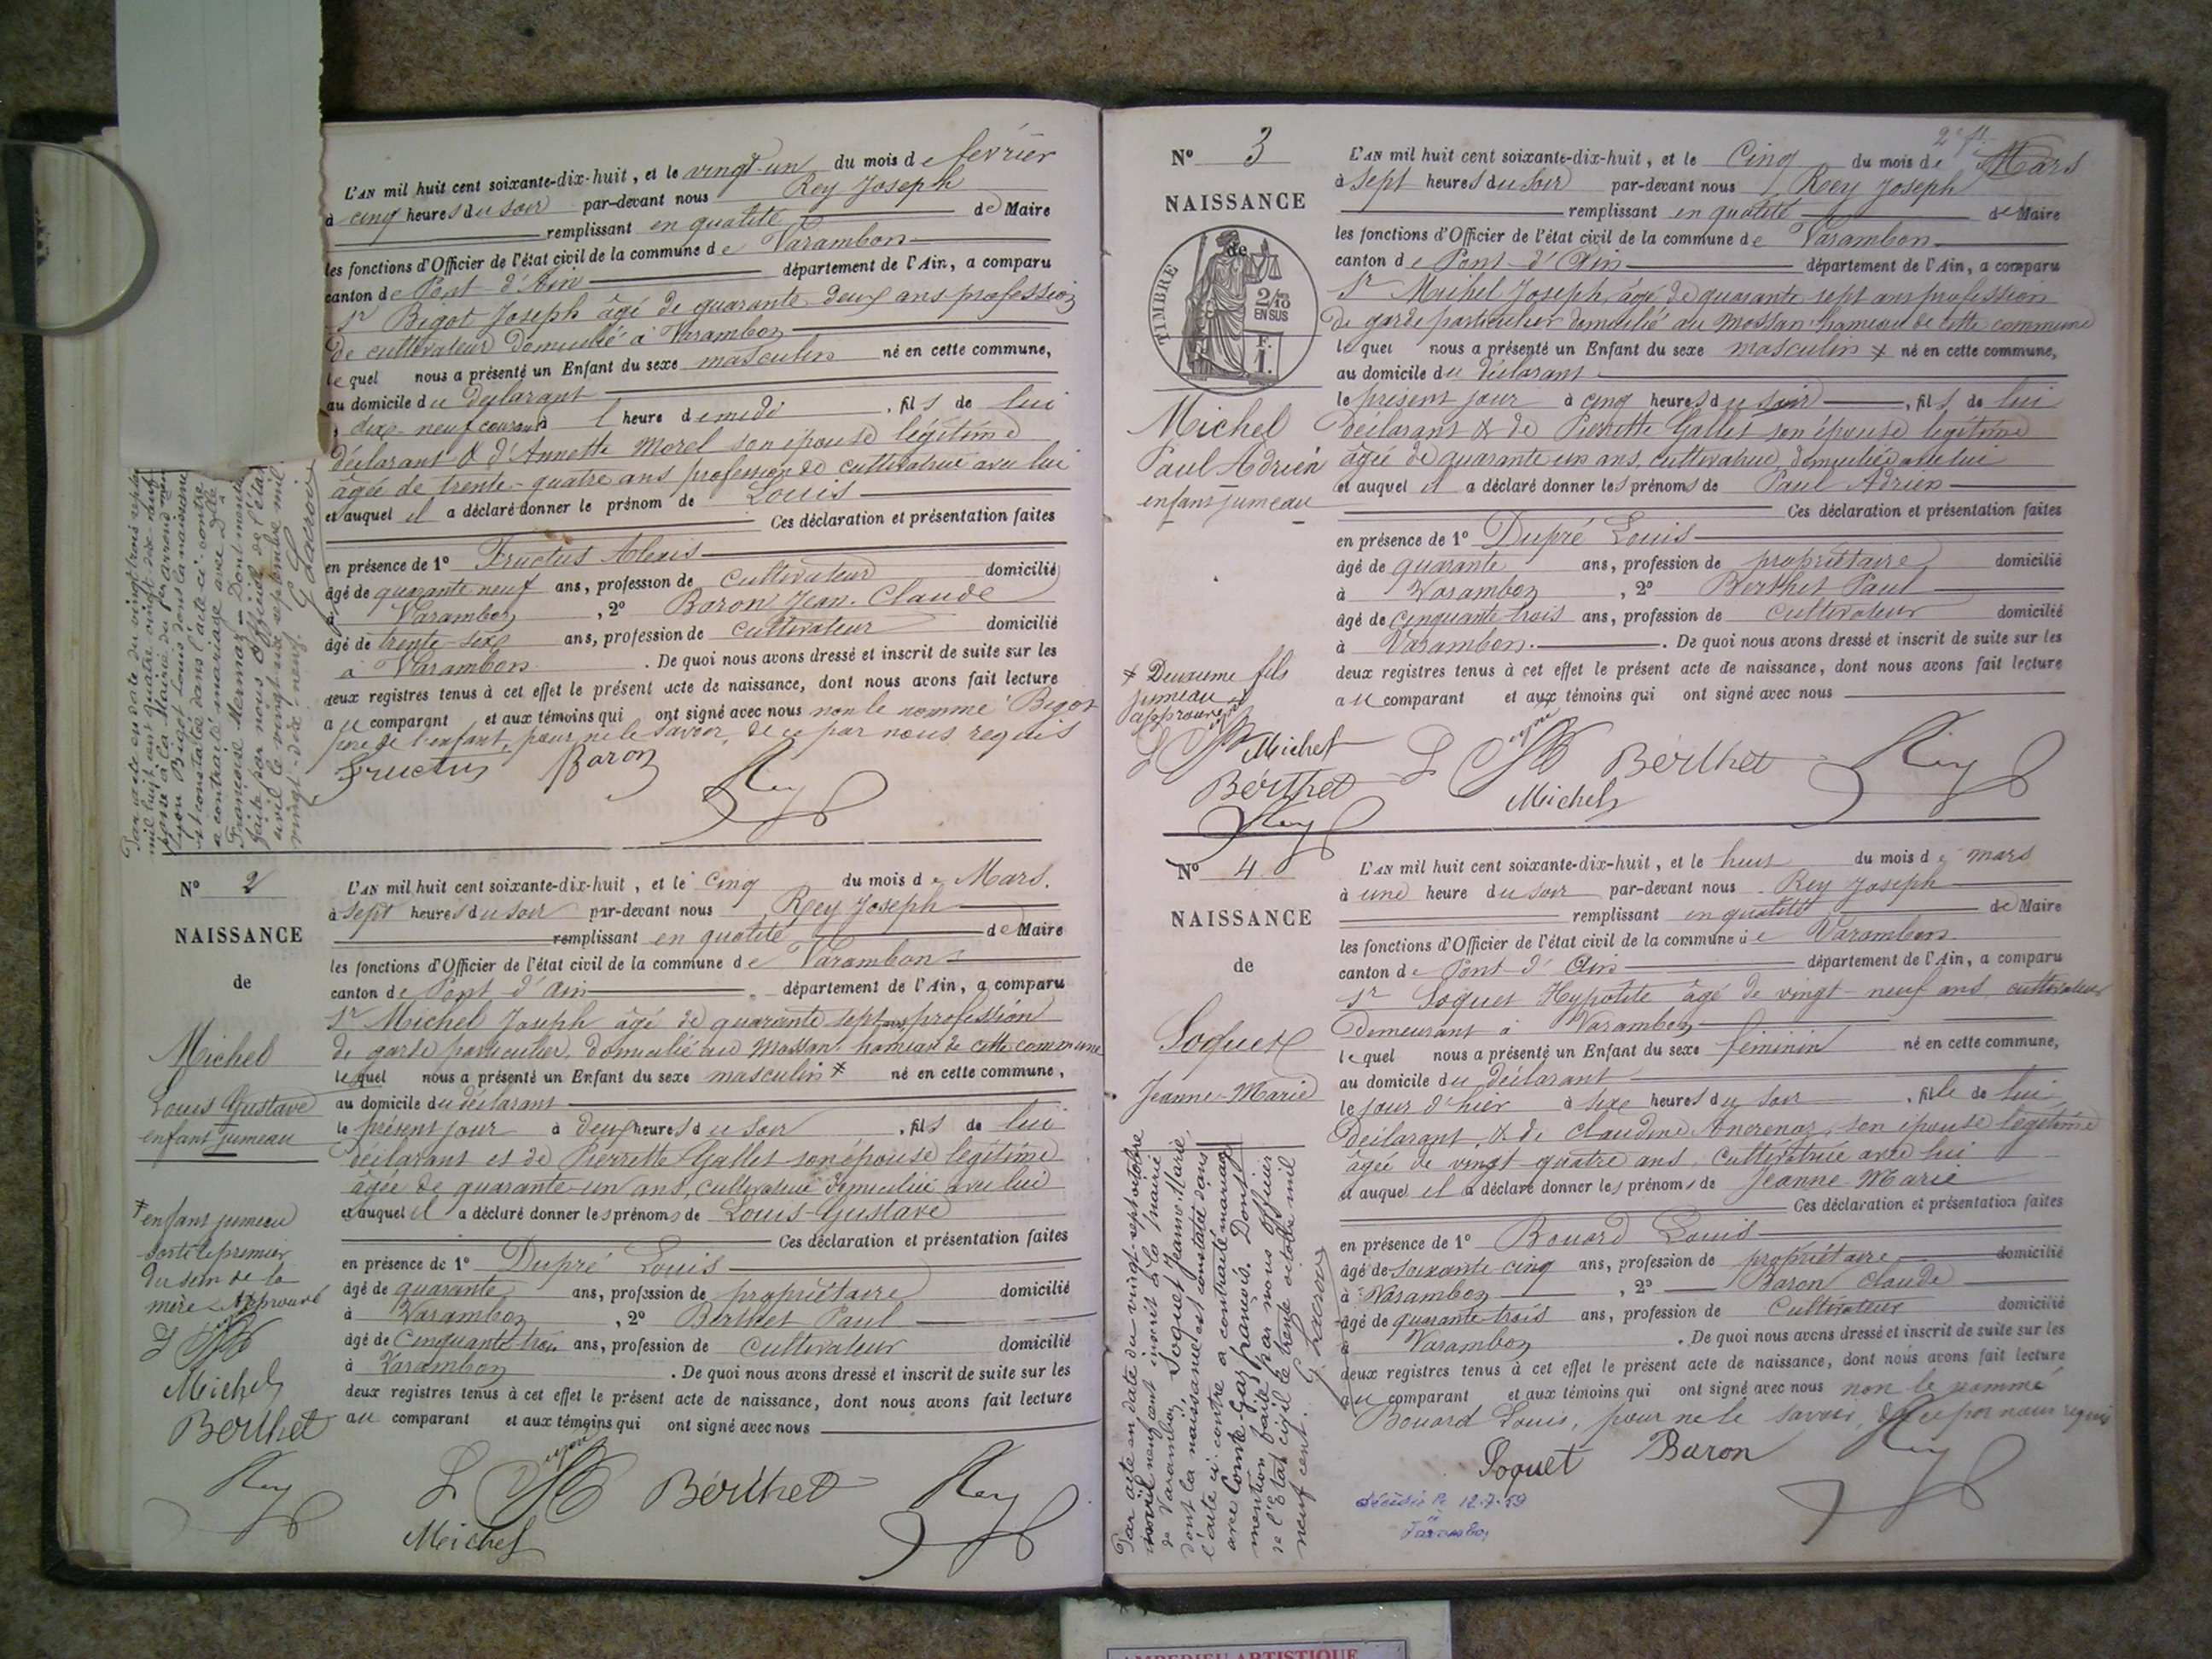 L'AN mil huit cent soixante-dix-huit, et le vingt-un du mois de février
à cinq heures du soir par-devant nous Rey Joseph
remplissant en qualité de Maire
les fonctions d'Officier de l'état civil de la commune de Varambon
canton de Pont d'Ain département de l'Ain, a comparu
Sr Bigot Joseph âgé de quarante deux ans profession
de cultivateur domicilié à Varambon
lequel nous a présenté un Enfant du sexe masculin né en cette commune,
au domicile du déclarant
dix-neuf courant à 1 heure de midi, fils de lui
déclarant & d'Annette Morel son épouse légitime
âgée de trente-quatre ans profession de cultivatrice avec lui
et auquel il a déclaré donner le prénom de Louis
Ces déclaration et présentation faites
en présence de 1º Fructus Alexis
âgé de quarante neuf ans, profession de cultivateur domicilié
à Varambon, 2º Baron Jean-Claude
âgé de trente-six ans, profession de cultivateur domicilié
à Varambon. De quoi nous avons dressé et inscrit de suite sur les
deux registres tenus à cet effet le présent acte de naissance, dont nous avons fait lecture
au comparant et aux témoins qui ont signé avec nous non le nommé Bigot
père de l'enfant, pour ne le savoir, de ce par nous requis
Fructus Baron Rey
Par acte en date du vingt trois
mil huit cent quatre vingt dix neuf
passé à la Mairie du
Lyon Bigot Louis dont la naissance
est constatée dans l'acte ci-contre
a contracté mariage avec Dlle
Françoise Mermaz - Dont mention
faite par nous Officier de l'état
civil le vingt six septembre mil
vingt-dix neuf.
G Lacroix
Nº 2
NAISSANCE
de
Michel
Louis Gustave
enfant jumeau
* enfant jumeau
sorti le premier
du sein de la
mère Approuvé
Michel
Berthet
Rey
L'AN mil huit cent soixante-dix-huit, et le cinq du mois de Mars.
à sept heures du soir par-devant nous Rey Joseph
remplissant en qualité de Maire
les fonctions d'Officier de l'état civil de la commune de Varambon
canton de Pont d'Ain département de l'Ain, a comparu
Sr Michel Joseph âgé de quarante sept ans profession
de garde particulier, domicilié au Mossan hameau de cette commune
lequel nous a présenté un Enfant du sexe masculin * né en cette commune,
au domicile du déclarant
le présent jour à deux heures du soir, fils de lui
déclarant et de Pierrette Gallet son épouse légitime
âgée de quarante-un ans, cultivatrice domiciliée avec lui
et auquel il a déclaré donner les prénoms de Louis-Gustave
Ces déclaration et présentation faites
en présence de 1º Dupré Louis
âgé de quarante ans, profession de propriétaire domicilié
à Varambon, 2º Berthet Paul
âgé de Cinquante trois ans, profession de cultivateur domicilié
à Varambon. De quoi nous avons dressé et inscrit de suite sur les
deux registres tenus à cet effet le présent acte de naissance, dont nous avons fait lecture
au comparant et aux témoins qui ont signé avec nous
Berthet Rey
Michel
Nº 3
NAISSANCE
de
TIMBRE
2/10 EN SUS
F. 1.
Michel
Paul Adrien
enfant jumeau
* Deuxième fils
jumeau
approuvé
Michel
Berthet
Rey
L'AN mil huit cent soixante-dix-huit, et le Cinq du mois de Mars
à sept heures du soir par-devant nous Rey Joseph
remplissant en qualité de Maire
les fonctions d'Officier de l'état civil de la commune de Varambon
canton de Pont-d'Ain département de l'Ain, a comparu
Sr Michel Joseph, âgé de quarante sept ans profession
de garde particulier domicilié au Mossan hameau de cette commune
lequel nous a présenté un Enfant du sexe masculin * né en cette commune,
au domicile du déclarant
le présent jour à cinq heures du soir, fils de lui
déclarant & de Pierrette Gallet son épouse légitime
âgée de quarante un ans, cultivatrice, domiciliée avec lui
et auquel il a déclaré donner les prénoms de Paul Adrien
Ces déclaration et présentation faites
en présence de 1º Dupré Louis
âgé de quarante ans, profession de propriétaire domicilié
à Varambon, 2º Berthet Paul
âgé de cinquante trois ans, profession de cultivateur domicilié
à Varambon. De quoi nous avons dressé et inscrit de suite sur les
deux registres tenus à cet effet le présent acte de naissance, dont nous avons fait lecture
au comparant et aux témoins qui ont signé avec nous
Berthet Rey
Michel
Nº 4
NAISSANCE
de
Soquet
Jeanne-Marie
L'AN mil huit cent soixante-dix-huit, et le huit du mois de mars
à une heure du soir par-devant nous Rey Joseph
remplissant en qualité de Maire
les fonctions d'Officier de l'état civil de la commune de Varambon
canton de Pont d'Ain département de l'Ain, a comparu
Sr Soquet Hypolite âgé de vingt-neuf ans, cultivateur
Demeurant à Varambon
lequel nous a présenté un Enfant du sexe féminin né en cette commune,
au domicile du déclarant
le jour d'hier à six heures du soir, fille de lui
Déclarant, & de Claudine son épouse légitime
âgée de vingt-quatre ans, Cultivatrice avec lui
et auquel il a déclaré donner les prénoms de Jeanne Marie
Ces déclaration et présentation faites
en présence de 1º Bouard Louis
âgé de soixante cinq ans, profession de propriétaire domicilié
à Varambon, 2º Baron Claude
âgé de quarante-trois ans, profession de Cultivateur domicilié
à Varambon. De quoi nous avons dressé et inscrit de suite sur les
deux registres tenus à cet effet le présent acte de naissance, dont nous avons fait lecture
au comparant et aux témoins qui ont signé avec nous non le nommé
Bouard Louis, pour ne le savoir, de ce par nous requis
Soquet Baron Rey
décédée le 12.7.59
à Varambon
Par acte en date du vingt-sept octobre
mil neuf cent inscrit à la mairie
de Varambon Soquet Jeanne Marie,
dont la naissance est constatée dans
l'acte ci-contre a contracté mariage
avec Comte-Gaz François. Dont
mention faite par nous Officier
de l'Etat civil le trente octobre mil
neuf cent.
G Lacroix
AMBERIEU ARTISTIQUE